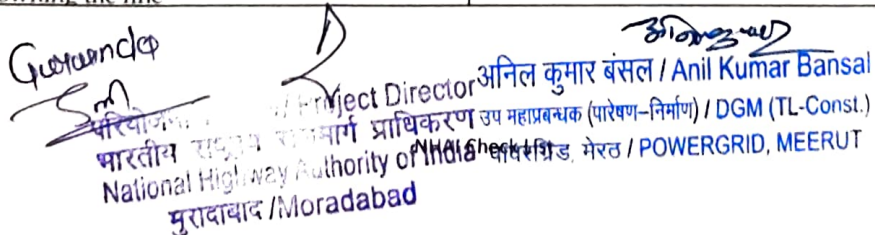 Gurwinder
/ Project Director
भारतीय राजमार्ग प्राधिकरण
National Highway Authority of India
मुरादाबाद / Moradabad
अनिल कुमार बंसल / Anil Kumar Bansal
उप महाप्रबन्धक (पारेषण-निर्माण) / DGM (TL-Const.)
पावरग्रिड, मेरठ / POWERGRID, MEERUT
NHAI Check List